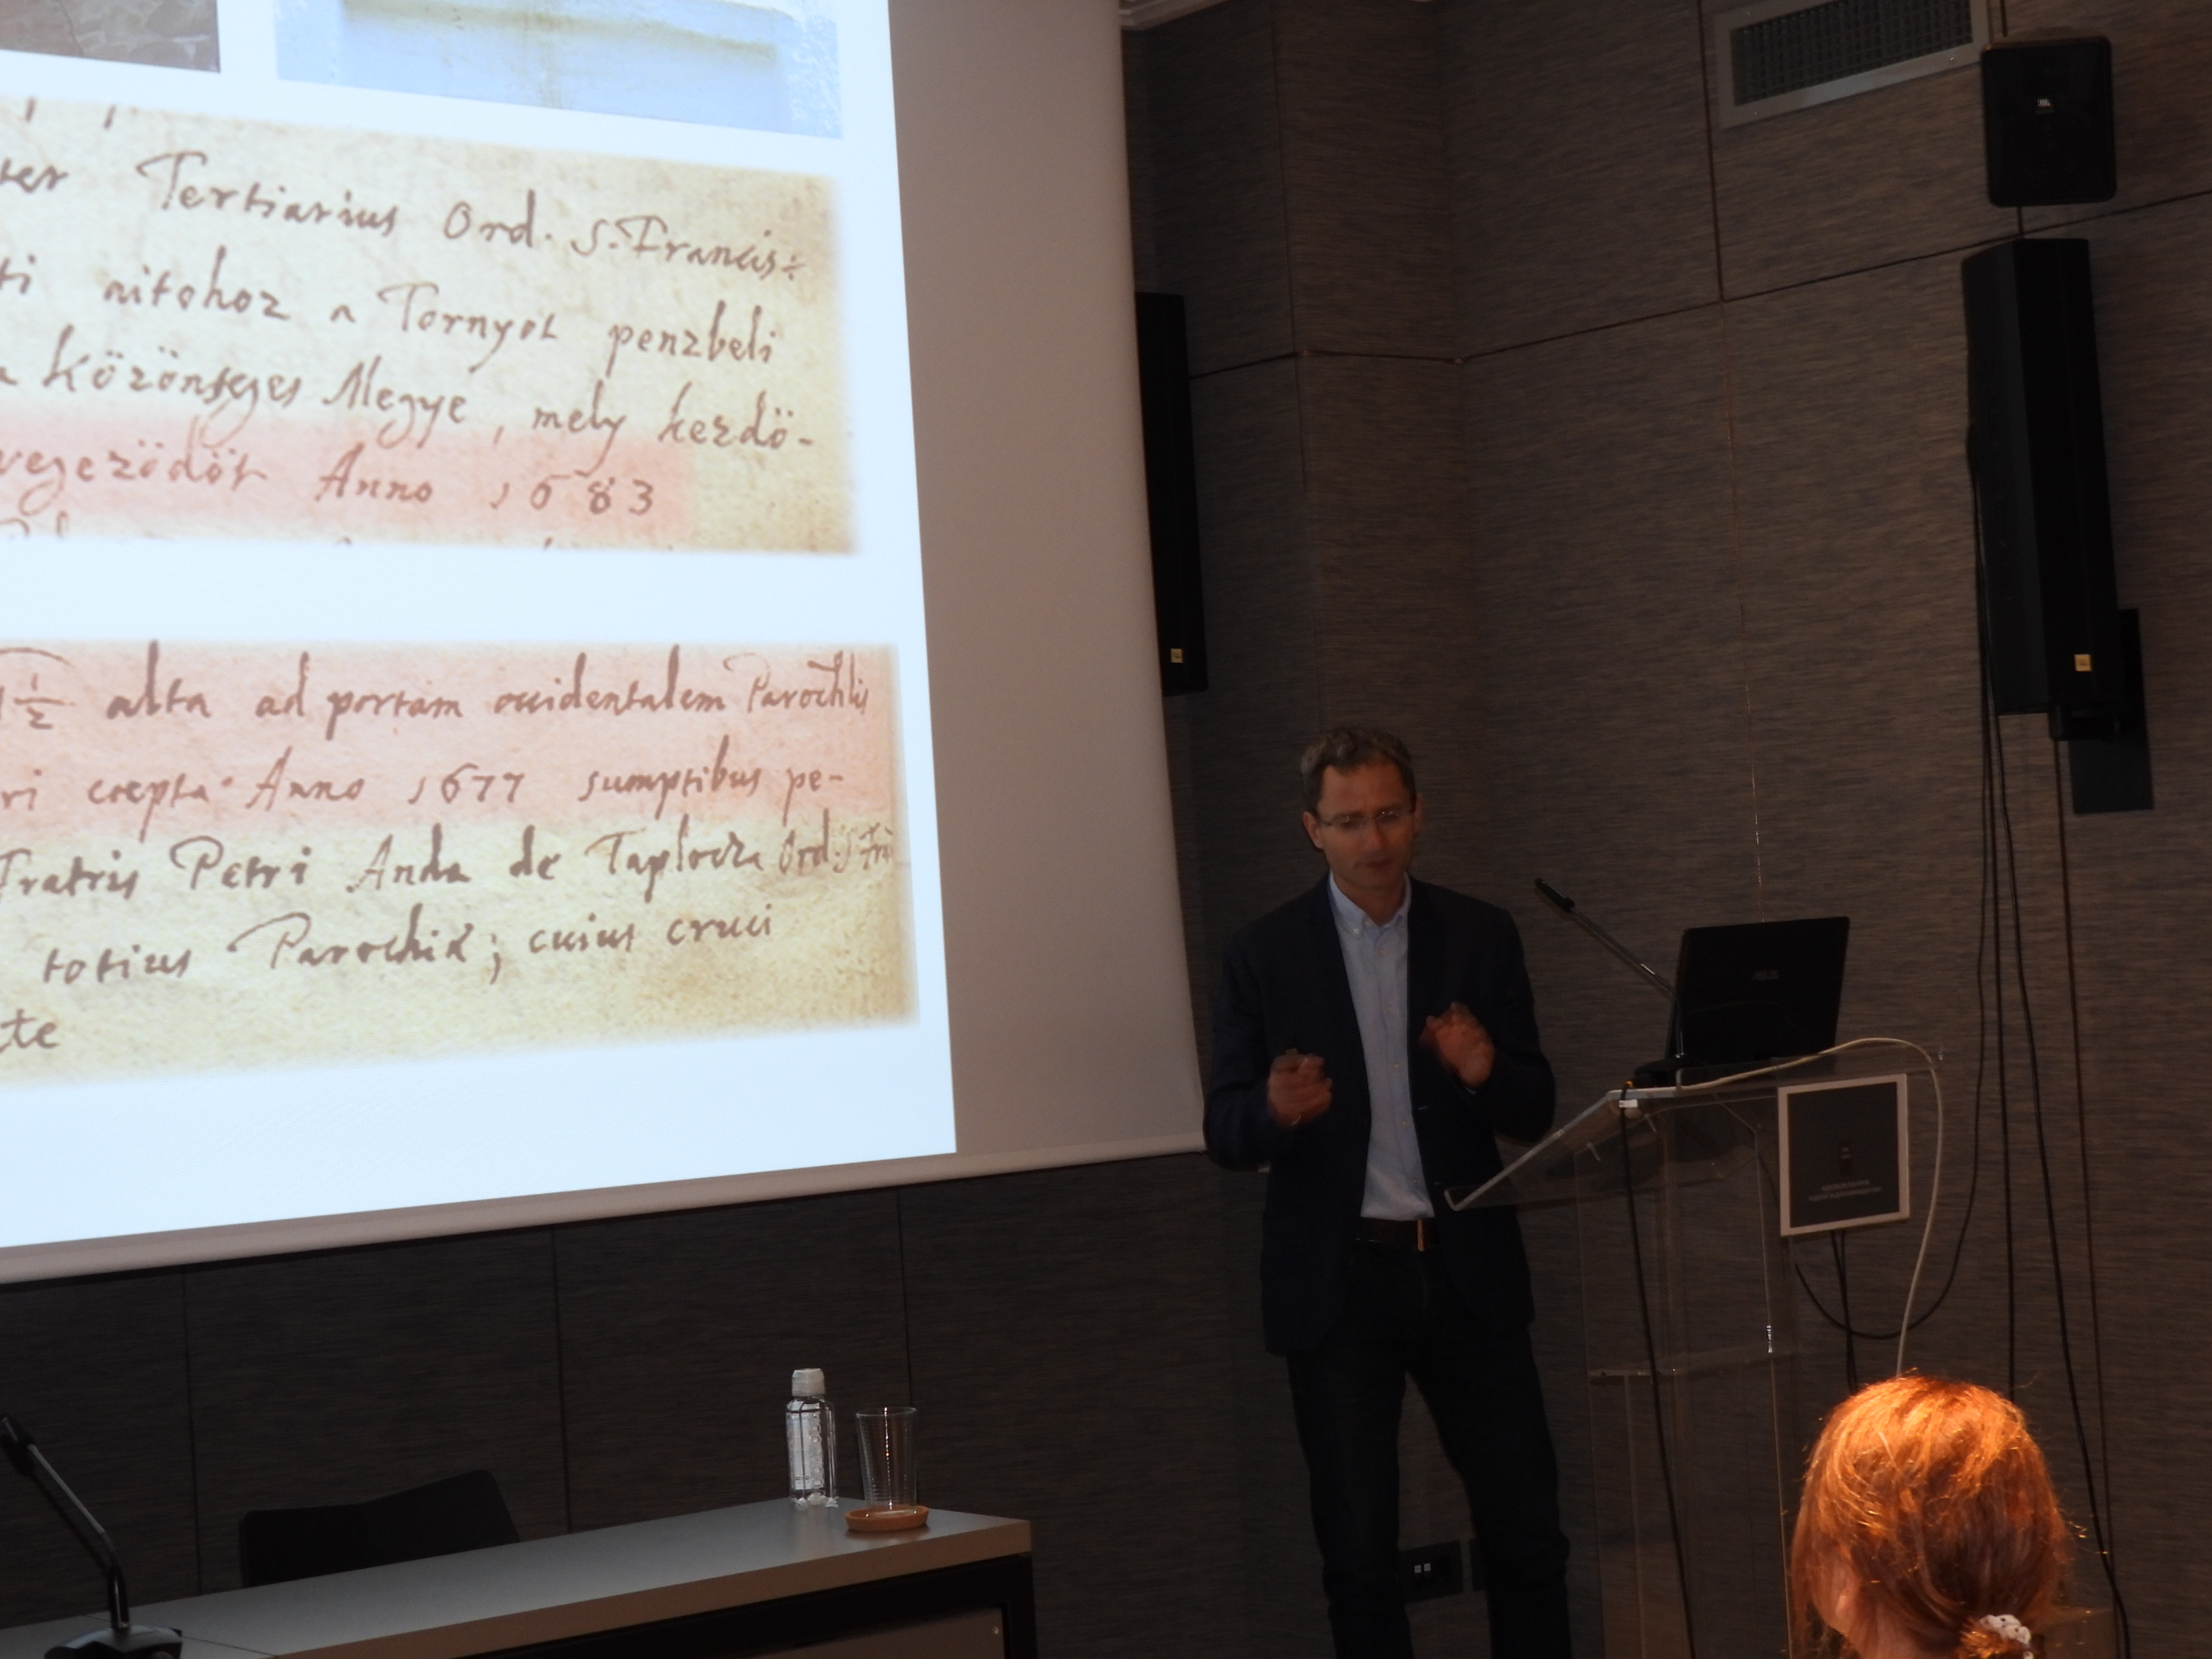 Tertiarius Ord. S. Francis÷
a Tornyot penzbeli
Közönseges Megye, mely kezdö-
vegezödöt Anno 1683
1/2 alta ad portam occidentalem Parochlis
ri coepta Anno 1677 sumptibus pe-
Fratris Petri Anda de Taplocza Ord. S. Fr
totius Parochiæ; cuius cruci
te
ASUS
JBL